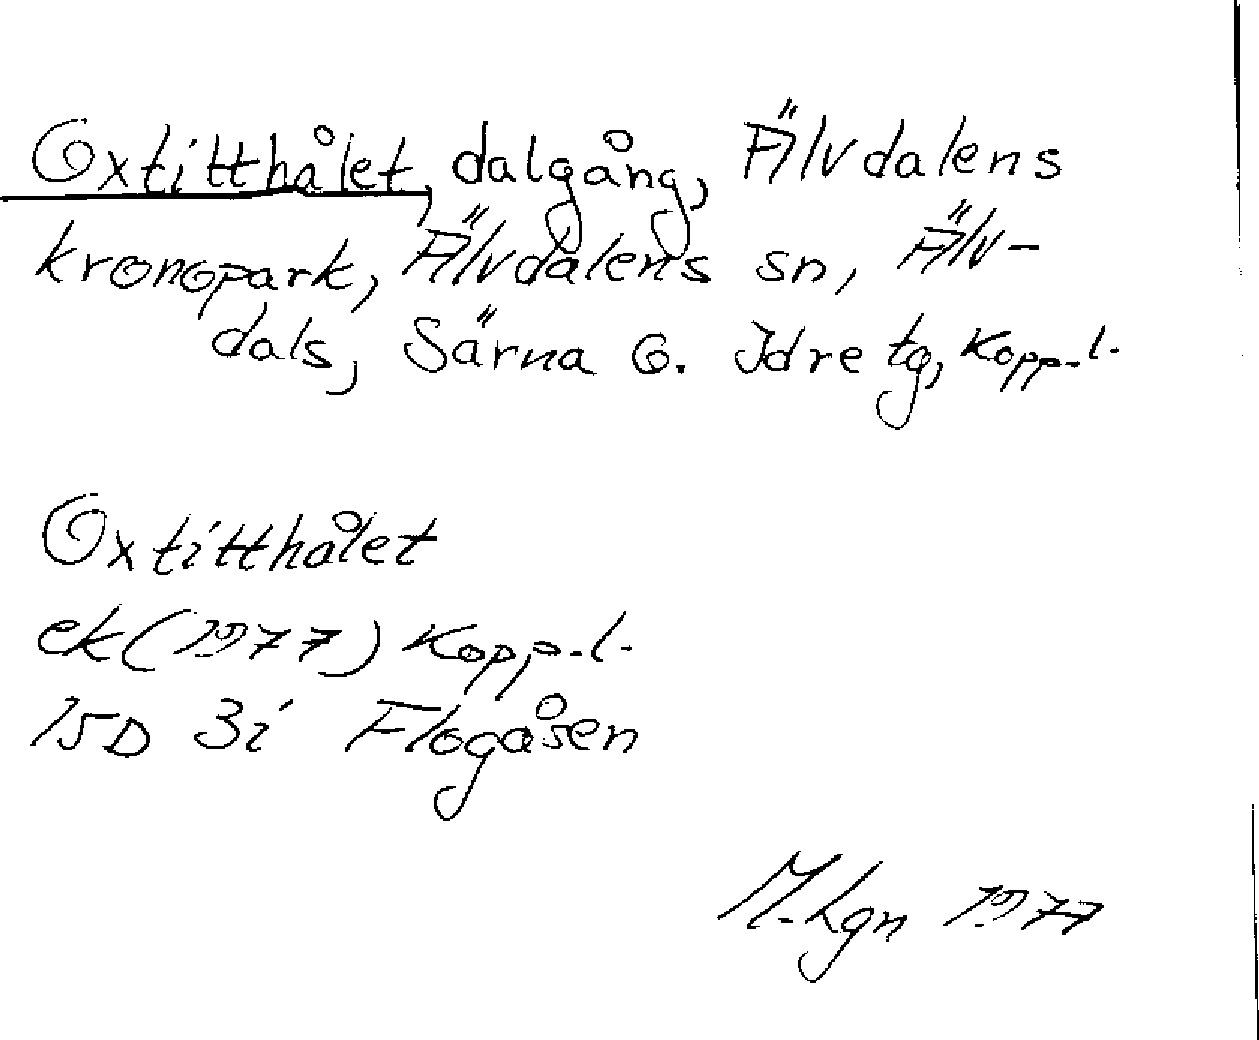 Oxtitthålet, dalgång, Älvdalens
kronopark, Älvdalens sn, Älv-
dals, Särna o. Idre tg, Kopp.l.
Oxtitthålet
ek (1977) Kopp.l.
15D 3i Flogåsen
M.Lgn 1977